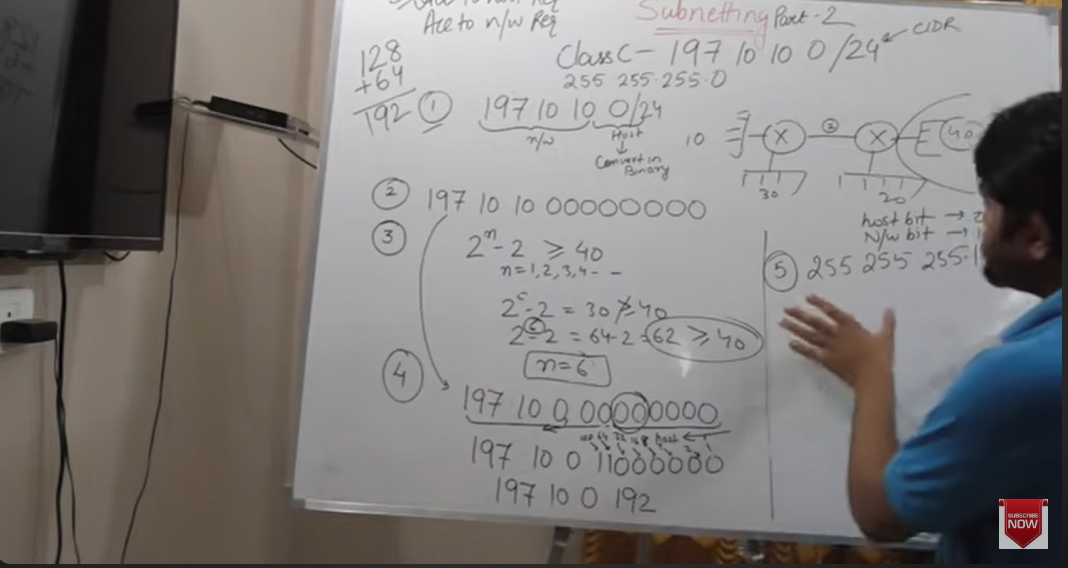 Acc to n/w Req
Subnetting Part-2
Class C - 197 10 10 0 /24 CIDR
255 255.255.0
128
+64
192
① 197 10 10 0/24
n/w Host
Convert in
Binary
10 30 2 20 40
② 197 10 10 00000000
③ 2ⁿ-2 ≥ 40
n=1,2,3,4--
2⁵-2 = 30 ≱ 40
2⁶-2 = 64-2 = 62 ≥ 40
n=6
④ 197 10 0 00000000
host
197 10 0 11000000
197 10 0 192
host bit →
N/w bit →
⑤ 255 255 255.1
SUBSCRIBE
NOW